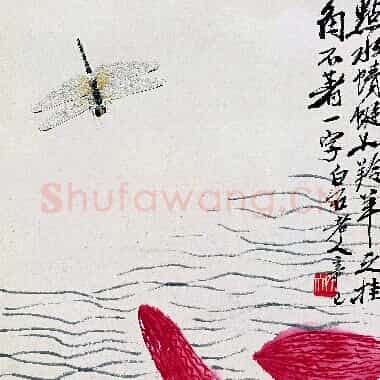 點水蜻蜓如羚羊之挂
角不着一字白石老人辛巳
Shufawang.CN